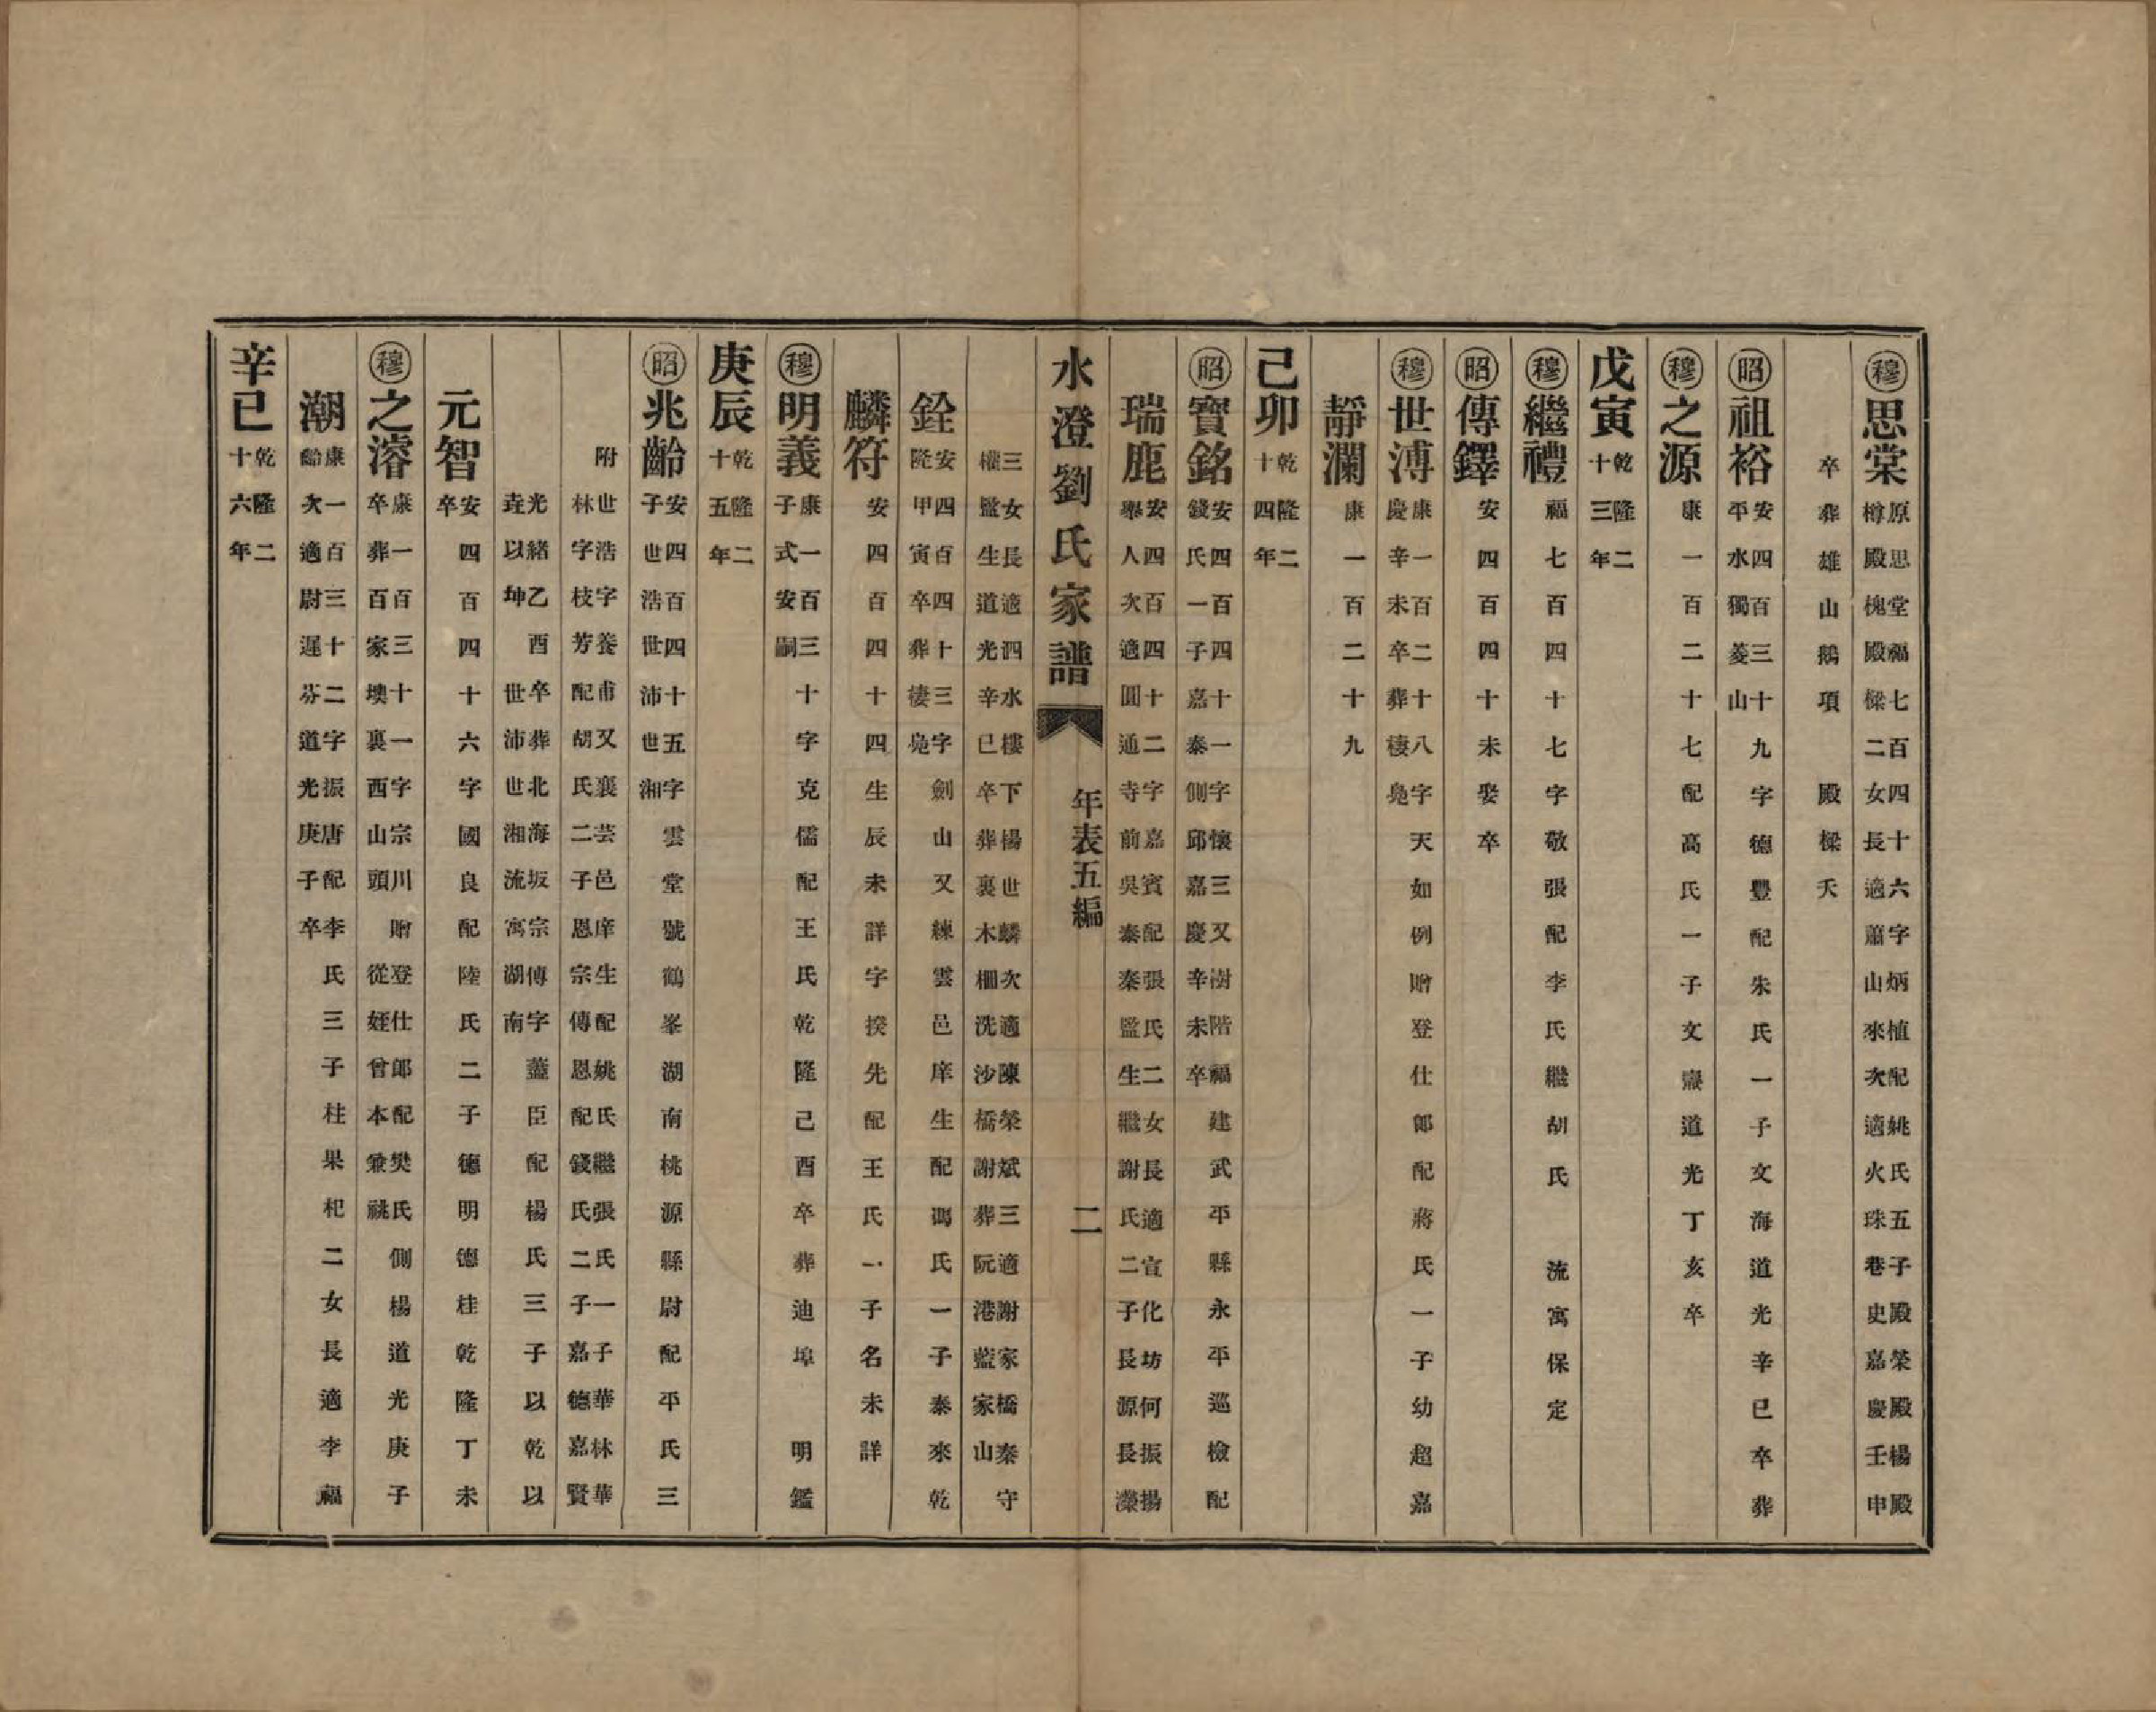 穆思棠 原思堂福七百四十六字炳植配姚氏五子殿榮殿楊殿
樽殿槐殿樑二女長適蕭山來次適火珠巷史嘉慶壬申
卒葬雄山鵝項 殿樑夭
昭祖裕 安四百三十九字德豐配朱氏一子文海道光辛巳卒葬
平水獨菱山
穆之源 康一百二十七配高氏一子文濂道光丁亥卒
戊寅 乾隆二
十三年
穆繼禮 福七百四十七字敬張配李氏繼胡氏 流寓保定
昭傳鐸 安四百四十未娶卒
穆世溥 康一百二十八字天如例贈登仕郎配蔣氏一子幼超嘉
慶辛未卒葬棲鳧
靜瀾 康一百二十九
己卯 乾隆二
十四年
昭寶銘 安四百四十一字懷三又澍階福建武平縣永平巡檢配
錢氏一子嘉泰側邱嘉慶辛未卒
瑞鹿 安四百四十二字嘉賓配張氏二女長適宣化坊何振揚
舉人次適圓通寺前吳泰秦監生繼謝氏二子長源長灤
水澄劉氏家譜 年表五編 二
三女長適泗水樓下楊世麟次適陳榮斌三適謝家橋秦守
權監生道光辛巳卒葬裏木柵洗沙橋謝葬阮港藍家山
銓 安四百四十三字劍山又練雲邑庠生配馮氏一子泰來乾
隆甲寅卒葬棲鳧
麟符 安四百四十四生辰未詳字揆先配王氏一子名未詳
穆明義 康一百三十字克儒配王氏乾隆己酉卒葬迪埠 明鑑
子式安嗣
庚辰 乾隆二
十五年
昭兆齡 安四百四十五字雲堂號鶴峯湖南桃源縣尉配平氏三
子世浩世沛世湘
附 世浩字養甫又襄芸邑庠生配姚氏繼張氏一子華林華
林字枝芳配胡氏二子恩宗傳恩配錢氏二子嘉德嘉賢
光緒乙酉卒葬北海坂宗傳字藎臣配楊氏三子以乾以
垚以坤 世沛世湘流寓湖南
元智 安四百四十六字國良配陸氏二子德明德桂乾隆丁未
卒
穆之濬 康一百三十一字宗川贈登仕郎配樊氏側楊道光庚子
卒葬百家墺裏西山頭 從姪曾本兼祧
潮 康一百三十二字振唐配李氏三子柱果杞二女長適李福
齡次適尉遲芬道光庚子卒
辛巳 乾隆二
十六年